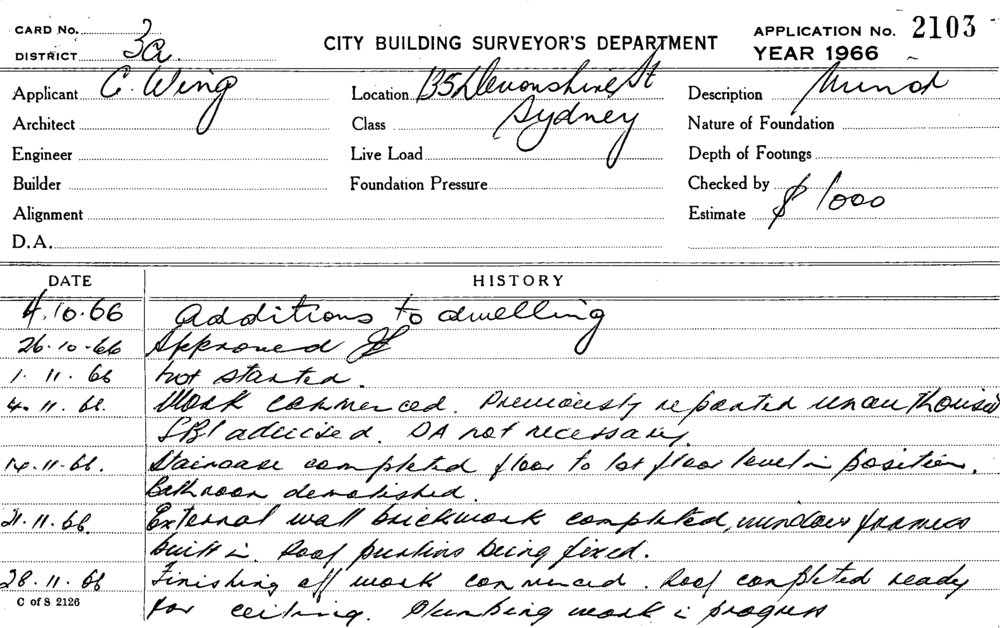 CARD No.
DISTRICT 3a.
CITY BUILDING SURVEYOR'S DEPARTMENT
APPLICATION No. 2103
YEAR 1966
Applicant C. Wing
Location 135 Devonshire St
Sydney
Description Minor
Architect
Class
Nature of Foundation
Engineer
Live Load
Depth of Footings
Builder
Foundation Pressure
Checked by
Alignment
Estimate $ 1000
D.A.
DATE HISTORY
4.10.66 Additions to dwelling
26.10.66 Approved
1.11.66 Not started.
4.11.66. Work commenced. Previously reported unauthorised
SBI advised. DA not necessary.
14.11.66. Staircase completed floor to 1st floor level in position.
Bathroom demolished.
21.11.66. External wall brickwork completed, window frames
built in. Roof purlins being fixed.
28.11.66 Finishing off work commenced. Roof completed ready
for ceiling. Plumbing work in progress
C of S 2126